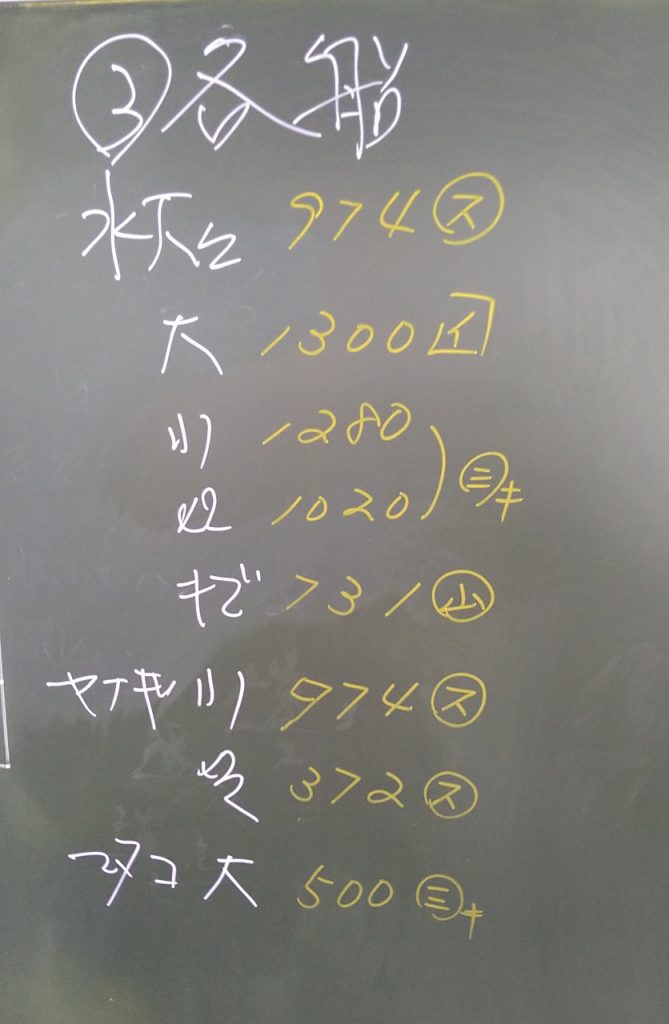 ③各船
水天 974 ㋜
大 1300 イ
小 1280
1020 ㊂キ
キズ 731 ㊤
ヤナギ 小 974 ㋜
372 ㋜
マダコ 大 500 ㊂キ